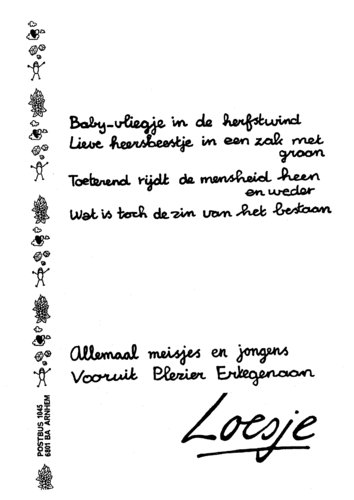 Baby-vliegje in de herfstwind
Lieve heersbeestje in een zak met
graan
Toeterend rijdt de mensheid heen
en weder
Wat is toch de zin van het bestaan
Allemaal meisjes en jongens
Vooruit Plezier Ertegenaan
Loesje
POSTBUS 1045
6801 BA ARNHEM